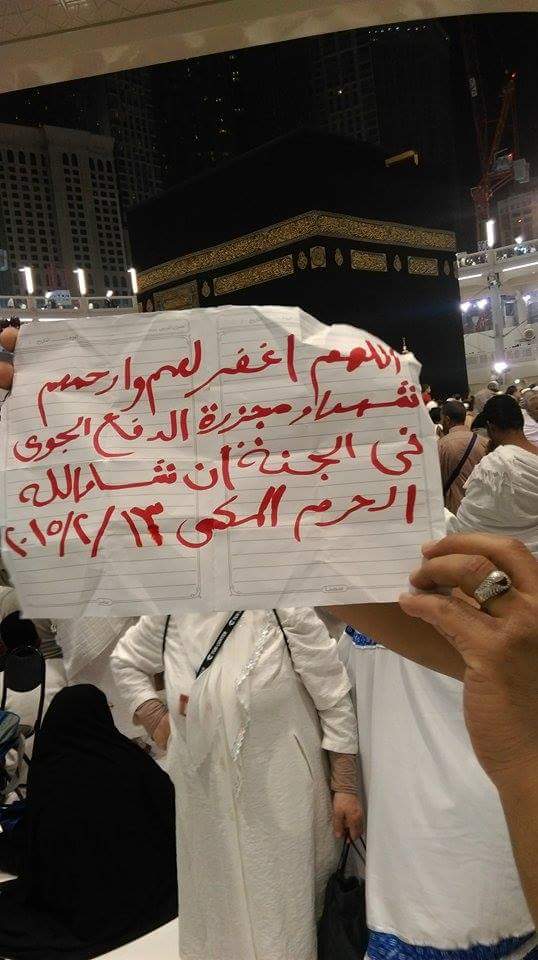 اللهم اغفر لهم وارحمهم
شهداء مجزرة الدفاع الجوى
فى الجنة ان شاء الله
الحرم المكى ٢٠١٥/٢/١٣